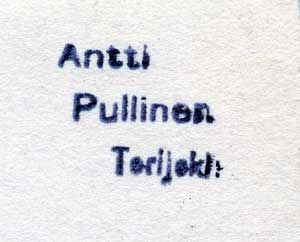 Antti
Pullinen
Terijoki.